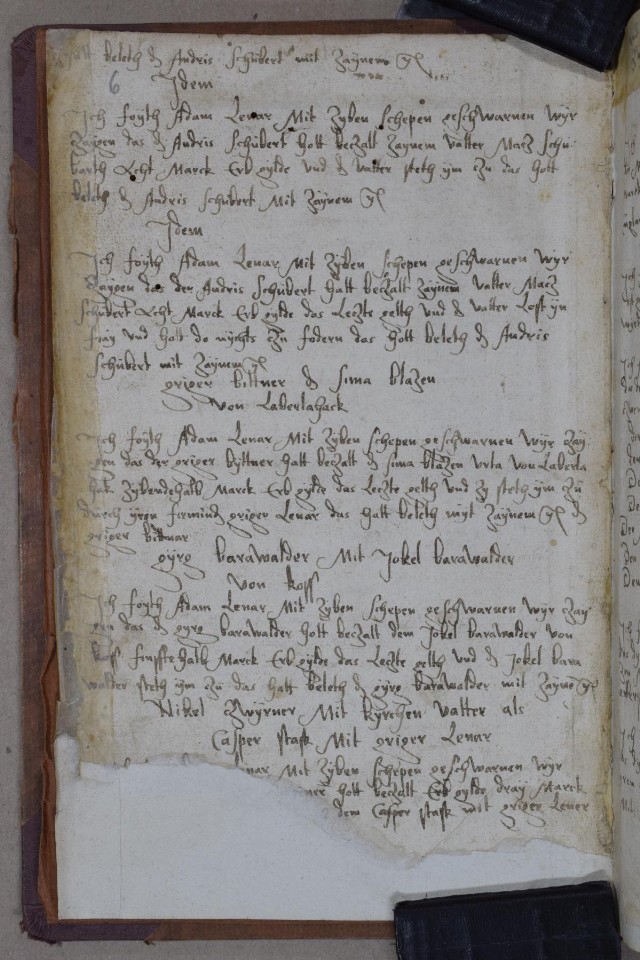 hott beleth d Andris Schubert mit Zaÿnem
6
Idem
Ich foÿth Adam Lenar Mit Zÿben schepen geschwarnen wÿr
Zaÿgen das d Andris Schubert hott beczalt Zaynem vatter Macz Schu
barth Acht Marck Erb gylde vnd d vatter steth ÿm Zu das hott
beleth d Andris schubert Mit Zaÿnem
Idem
Ich foÿth Adam Lenar Mit Zÿben schepen geschwarnen wÿr
Zaÿgen das der Andris Schubert hatt beczalt Zaÿnem vatter Macz
Schubert Acht Marck Erb gylde das Leczte gelth vnd d vatter Lost ÿn
fraÿ vnd hott do nÿchts Czu fodern das hott beleth d Andris
Schubert mit Zaÿnem
griger bittner d sima blazen
von Laberlahack
Ich foÿth Adam Lenar Mit Zÿben schepen geschwarnen wÿr Zaÿ
gen das der griger bÿttner hatt beczalt d sima blazen vrta von Laberla
hak Zÿbendehalb Marck Erb gylde das Leczte gelth vnd Zÿ steth ÿm Zu
durch ÿren formind griger Lenar das hatt beleth mÿt Zaÿnem d
griger bittnar
gÿrg barawalder Mit Jokel barawalder
von koss
Ich foÿth Adam Lenar Mit Zÿben schepen geschwarnen wÿr Zaÿ
gen das d gÿrg barawalder hott beczalt dem Jokel barawalder von
koss finffte halb Marck Erb gylde das Leczte gelth vnd d Jokel bara
walder steth ÿm Zu das hatt beleth d gÿrg barawalder mit Zaÿne
Nikel Zwÿrner Mit kÿrchen vatter als
Casper stask Mit griger Lenar
Lenar Mit Zÿben schepen geschwarnen wÿr
hott beczalt Erb gylde draÿ Marck
dem Casper stask mit griger Lener